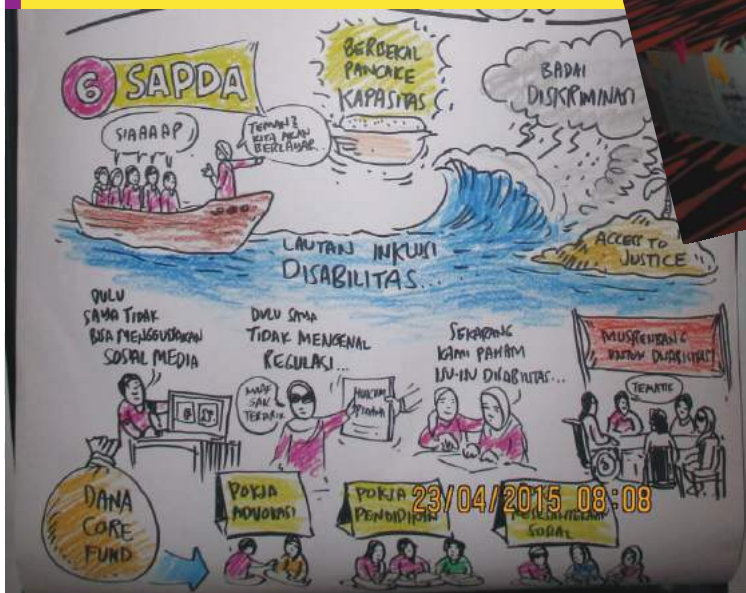 6 SAPDA
BERBEKAL
PANCAKE
KAPASITAS
BADAI
DISKRIMINASI
SIAAAAP
TEMAN2
KITA AKAN
BERLAYAR..
LAUTAN INKLUSI
DISABILITAS...
ACCESS TO
JUSTICE
DULU
SAYA TIDAK
BISA MENGGUNAKAN
SOSIAL MEDIA
DULU SAYA
TIDAK MENGENAL
REGULASI...
MAAF
GAK
TERTARIK
HUKUM
PIDANA
SEKARANG
KAMI PAHAM
ISU-ISU DISABILITAS...
MUSRENBANG
UNTUK DISABILITAS
TEMATIK
DANA
CORE
FUND
POKJA
ADVOKASI
POKJA
PENDIDIKAN
KESEJAHTERAAN
SOSIAL
23/04/2015 08:08